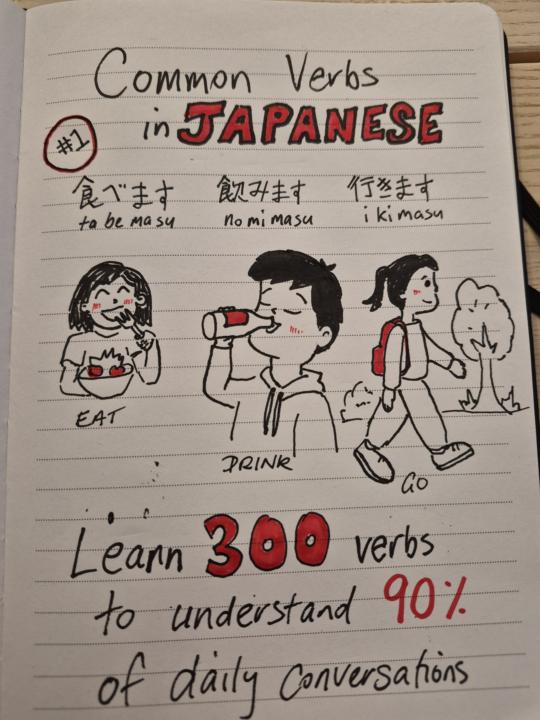 Common Verbs
in JAPANESE
#1
食べます 飲みます 行きます
ta be ma su no mi masu i ki masu
EAT
DRINK
GO
Learn 300 verbs
to understand 90%
of daily conversations